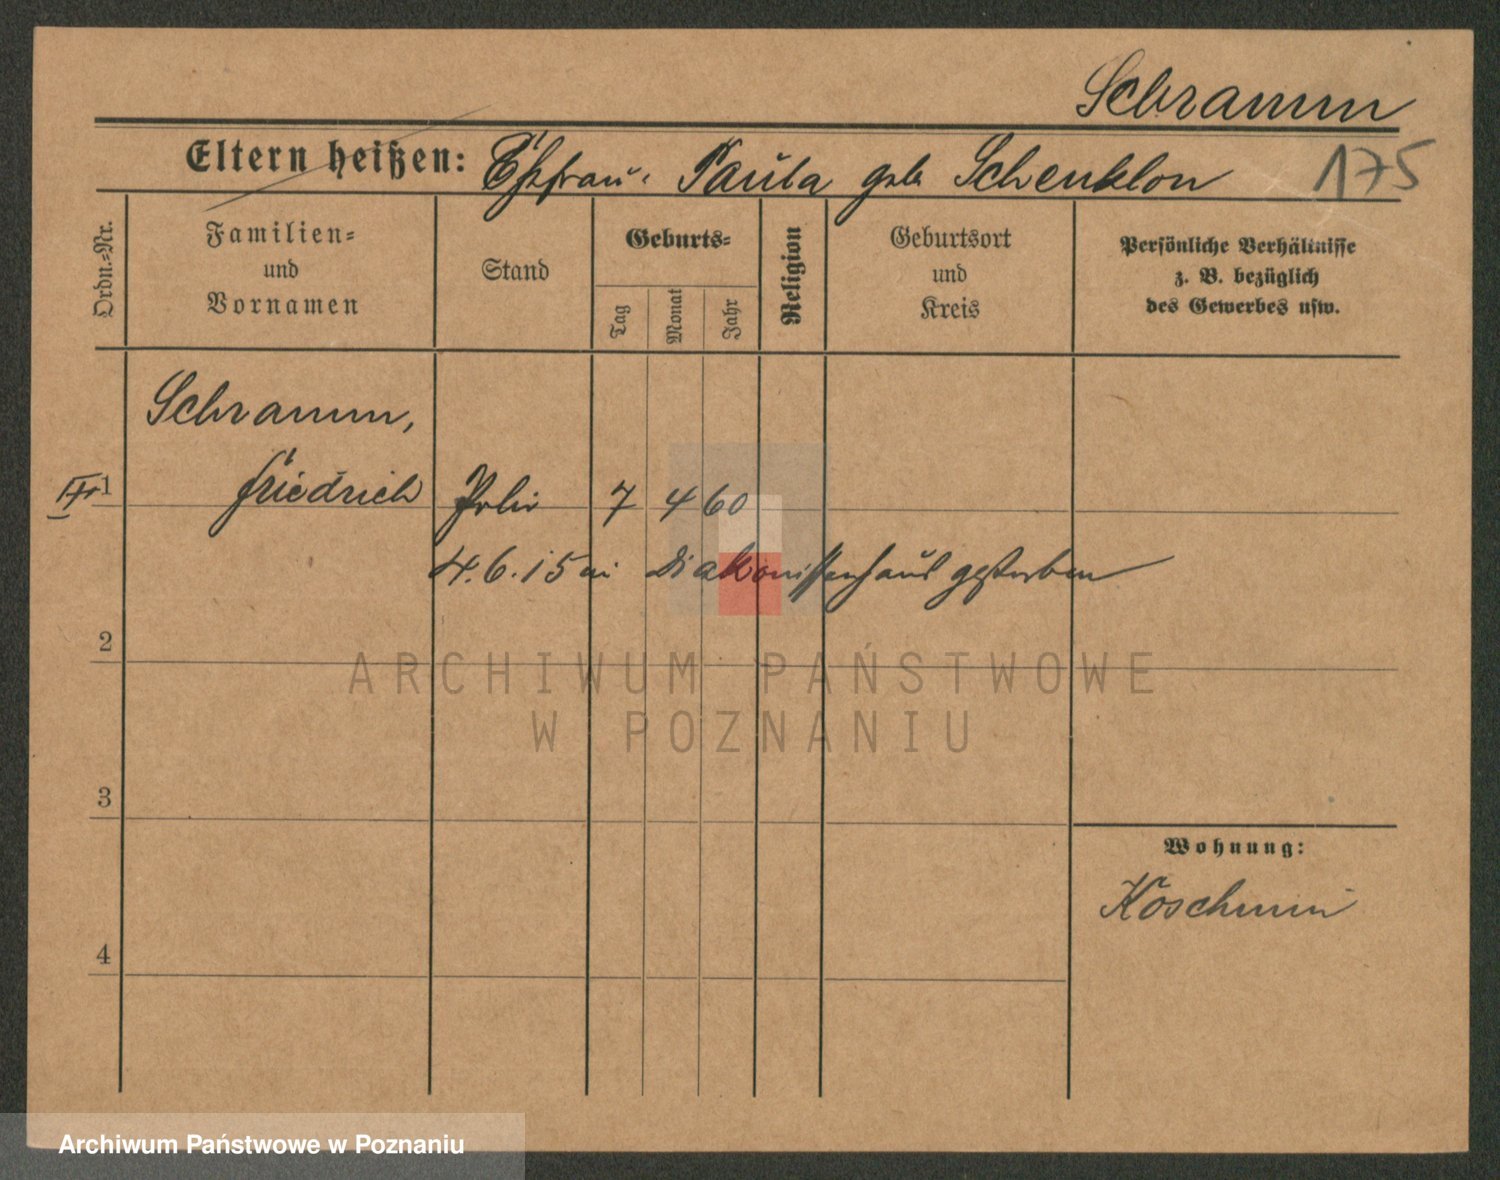 Schramm
175
Eltern heißen: Ehefrau: Paula geb. Schenklon
Ordn.-Nr.
Familien-
und
Vornamen
Stand
Geburts-
Tag
Monat
Jahr
Religion
Geburtsort
und
Kreis
Persönliche Verhältnisse
z. B. bezüglich
des Gewerbes usw.
Schramm,
1 Friedrich 7 4 60
4.6.15 im Diakonissenhaus gestorben
2
ARCHIWUM PAŃSTWOWE
W POZNANIU
3
Wohnung:
Koschmin
4
Archiwum Państwowe w Poznaniu